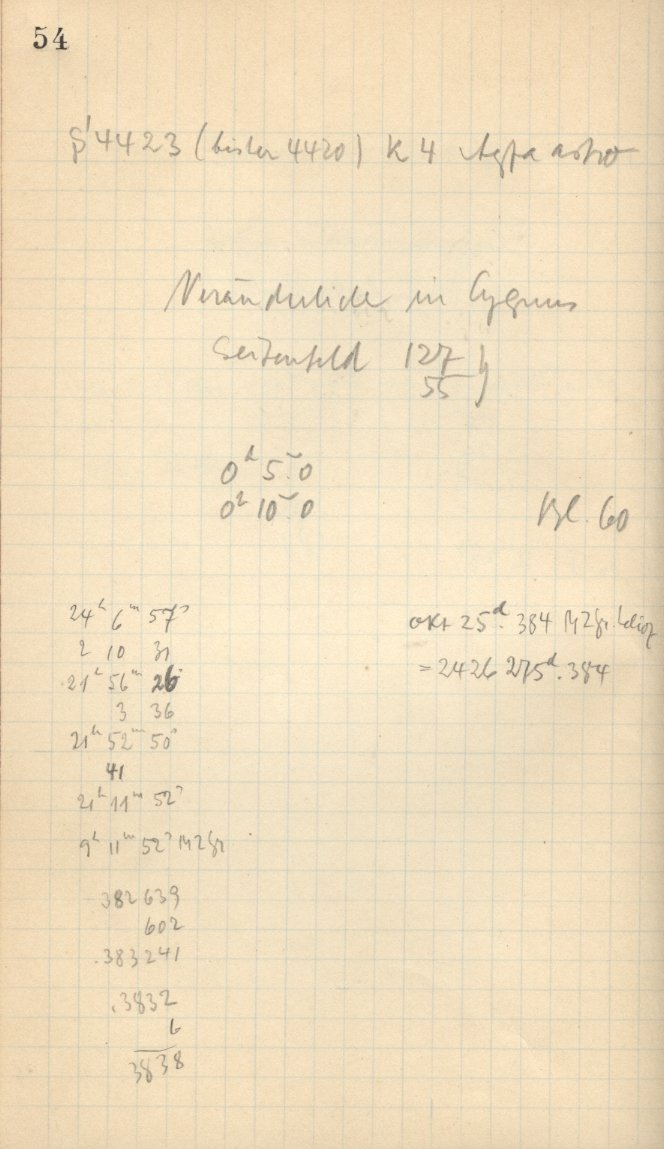 54
4423 (bisher 4420) K 4 Agfa astro
Veränderliche in Cygnus
Seitenfeld 127
55
0ʰ 5ᵐ.0
0ʰ 10ᵐ.0
Bl. 60
24ʰ 6ᵐ 57ˢ
2 10 31
21ʰ 56ᵐ 26ˢ
3 36
21ʰ 52ᵐ 50ˢ
41
21ʰ 11ᵐ 52ˢ
9ʰ 11ᵐ 52ˢ MZGr
.382639
602
.383241
.3832
6
3838
Okt 25ᵈ.384 MZGr. helioz
= 2426 275ᵈ.384